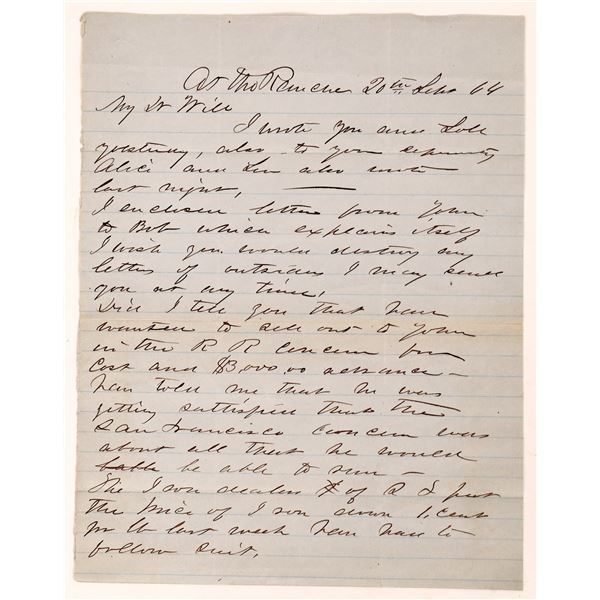 At the Rancho 20th Sept 64
My Dr Will
I wrote you and Loll
yesterday, also to you separately
Alice and Lu also wrote
last night,
I enclose letter from John
to Bob which explains itself
I wish you would destroy any
letters of outsiders I may send
you at any time,
Did I tell you that Van
wanted to sell out to John
in the R R Concern for
Cost and $3,000.00 advance -
Van told me that he was
getting satisfied that the
San Francisco Concern was
about all that he would
be able to run -
The Iron dealers of S F put
the price of Iron down 1, cent
pr lb last week Van had to
follow suit.